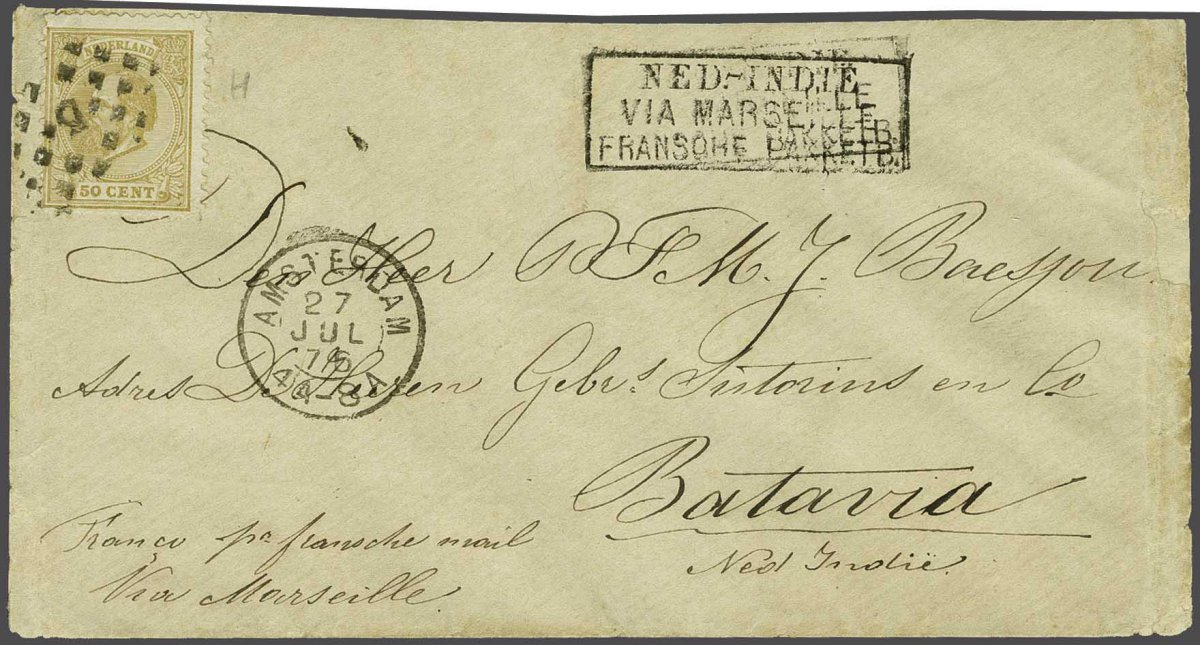 NEDERLAND
50 CENT
H
NED.-INDIË
VIA MARSEILLE
FRANSCHE PAKKETB.
Den Heer P F. M. J. Baesjou
AMSTERDAM
27
JUL
Adres De Heeren Gebrs. Sutorius en Co
Batavia
Ned Indië.
Franco pr fransche mail
Via Marseille.